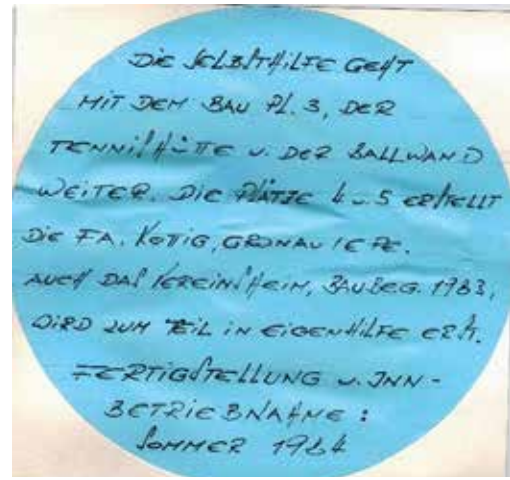 DIE SELBSTHILFE GEHT
MIT DEM BAU PL. 3, DER
TENNISHÜTTE U. DER BALLWAND
WEITER. DIE PLÄTZE 4 U. 5 ERSTELLT
DIE FA. KOTIG, GRONAU / EPE.
AUCH DAS VEREINSHEIM, BAUBEG. 1983,
WIRD ZUM TEIL IN EIGENHILFE ERST.
FERTIGSTELLUNG U. INN-
BETRIEBNAHME :
SOMMER 1984